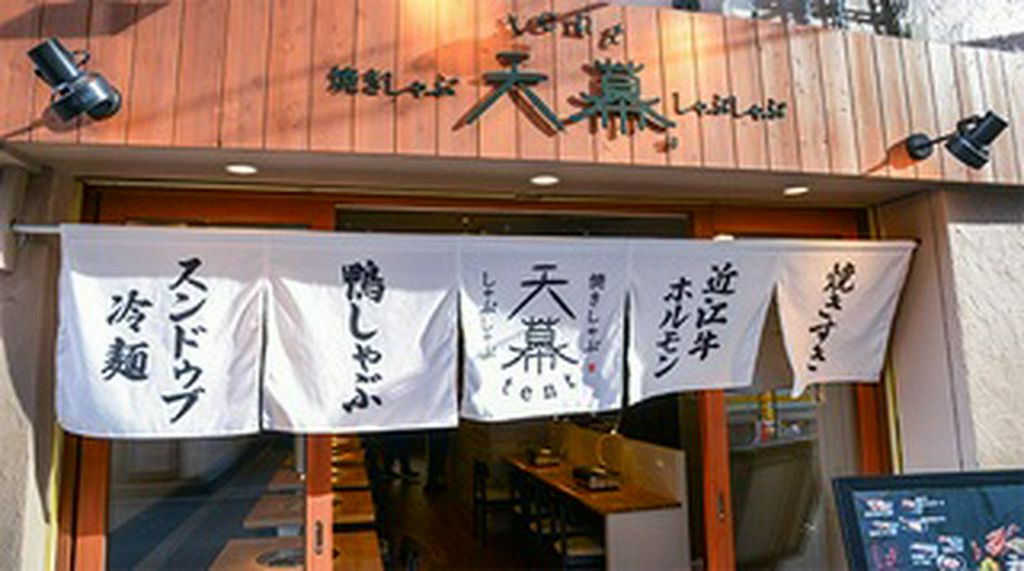 tent
焼きしゃぶ 天幕 しゃぶしゃぶ
焼きすき
近江牛
ホルモン
焼きしゃぶ
天幕
tent
しゃぶしゃぶ
鴨しゃぶ
スンドゥブ
冷麺